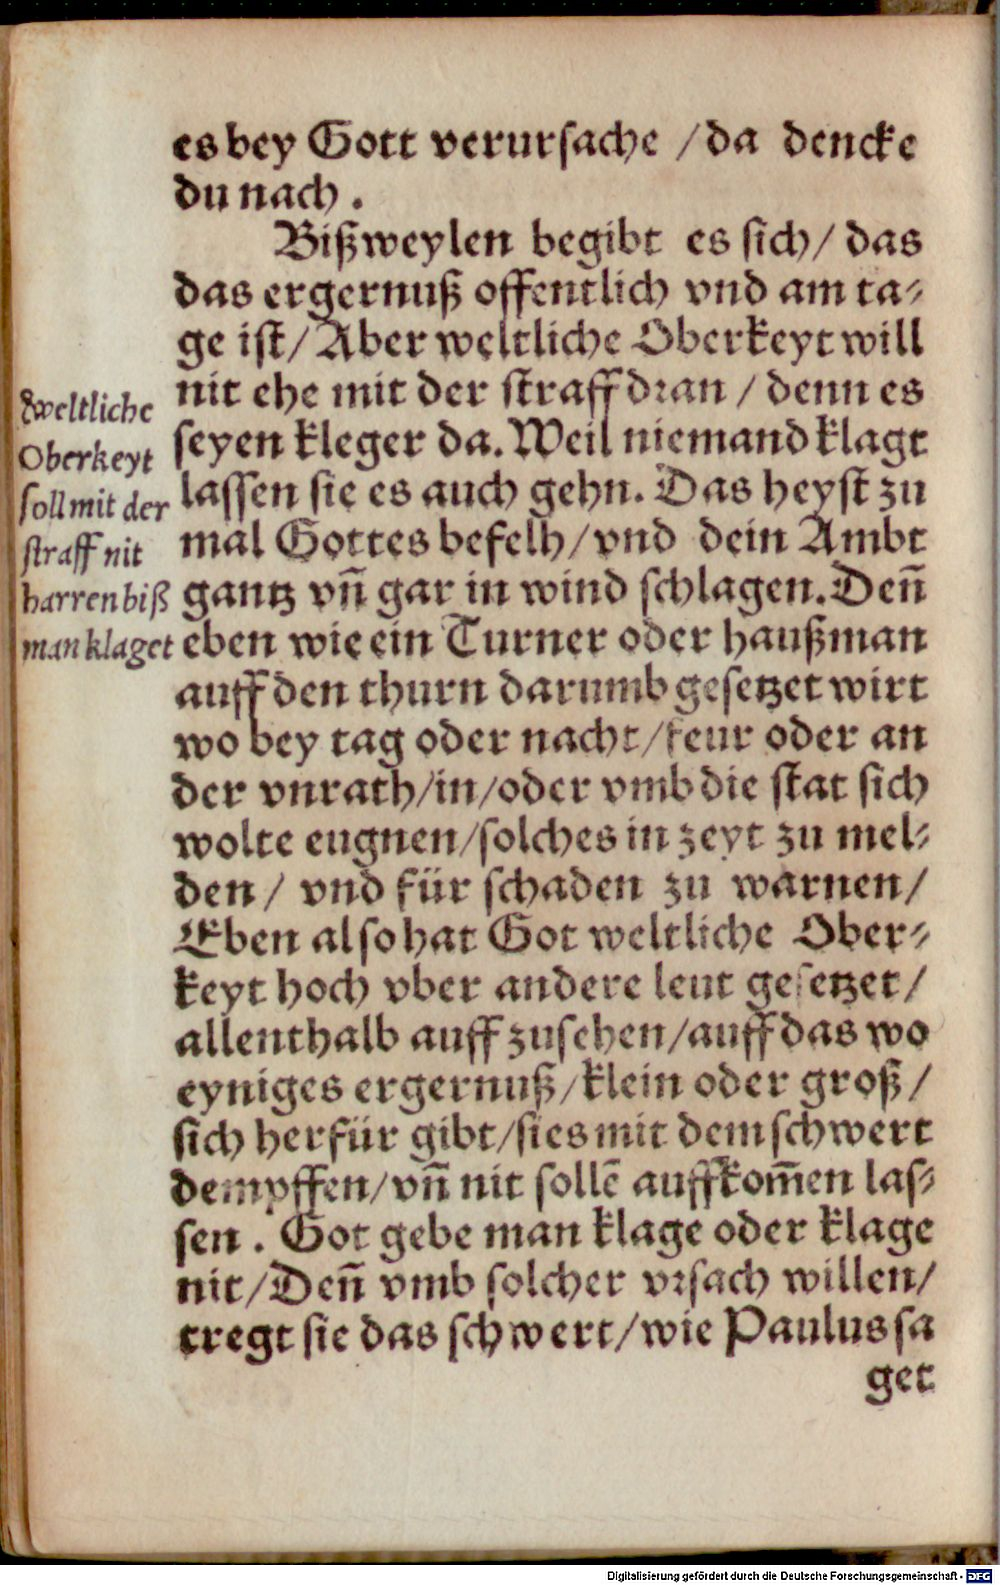 es bey Gott verursache / da dencke
du nach .
Bißweylen begibt es sich / das
das ergernuß offentlich vnd am ta⸗
ge ist / Aber weltliche Oberkeyt will
nit ehe mit der straff dran / denn es
seyen kleger da. Weil niemand klagt
lassen sie es auch gehn. Das heyst zu
mal Gottes befelh / vnd dein Ambt
gantz vn̄ gar in wind schlagen. Den̄
eben wie ein Turner oder haußman
auff den thurn darumb gesetzet wirt
wo bey tag oder nacht / feur oder an
der vnrath / in / oder vmb die stat sich
wolte eugnen / solches in zeyt zu mel⸗
den / vnd für schaden zu warnen /
Eben also hat Got weltliche Ober⸗
keyt hoch vber andere leut gesetzet /
allenthalb auff zusehen / auff das wo
eyniges ergernuß / klein oder groß /
sich herfür gibt / sies mit dem schwert
dempffen / vn̄ nit sollē auffkom̄en las⸗
sen . Got gebe man klage oder klage
nit / Den̄ vmb solcher vrsach willen /
tregt sie das schwert / wie Paulus sa
get
Weltliche
Oberkeyt
soll mit der
straff nit
harren biß
man klaget
Digitalisierung gefördert durch die Deutsche Forschungsgemeinschaft - DFG